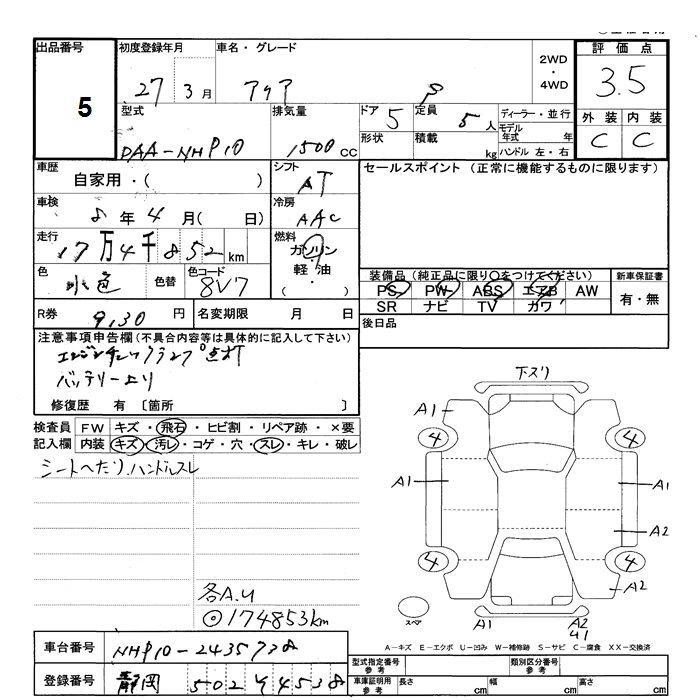 出品番号 初度登録年月 車名・グレード 2WD・4WD 評価点
5 27 3月 アクア S 3.5
型式 排気量 ドア 5 定員 5人 ディーラー・並行 外装 内装
DAA-NHP10 1500cc 形状 積載 kg モデル年式 年 ハンドル 左・右 C C
車歴 自家用・( ) シフト AT セールスポイント (正常に機能するものに限ります)
車検 8年4月( 日) 冷房 AAC
走行 17万4千852km 燃料 ガソリン・軽油・( )
色 水色 色替 色コード 8V7
装備品 (純正品に限り○をつけてください) 新車保証書
PS PW ABS エアB AW 有・無
SR ナビ TV カワ
R券 9,130円 名変期限 月 日 後日品
注意事項申告欄 (不具合内容等は具体的に記入して下さい)
エンジンチェックランプ点灯
バッテリー上り
修復歴 有 〔箇所 〕
検査員 FW キズ・飛石・ヒビ割・リペア跡・×要
記入欄 内装 キズ・汚レ・コゲ・穴・スレ・キレ・破レ
シートヘたり、ハンドルスレ
下スリ
A1
4 4
A1 A1
A2
4 4
A2
スペア A1 A2
各A.U
◎174853km
A-キズ E-エクボ U-凹み W-補修跡 S-サビ C-腐食 XX-交換済
車台番号 NHP10-2435738
型式指定番号 参考 類別区分番号 参考
登録番号 静岡 502 4538
車庫証明用 参考 長さ cm 幅 cm 高さ cm